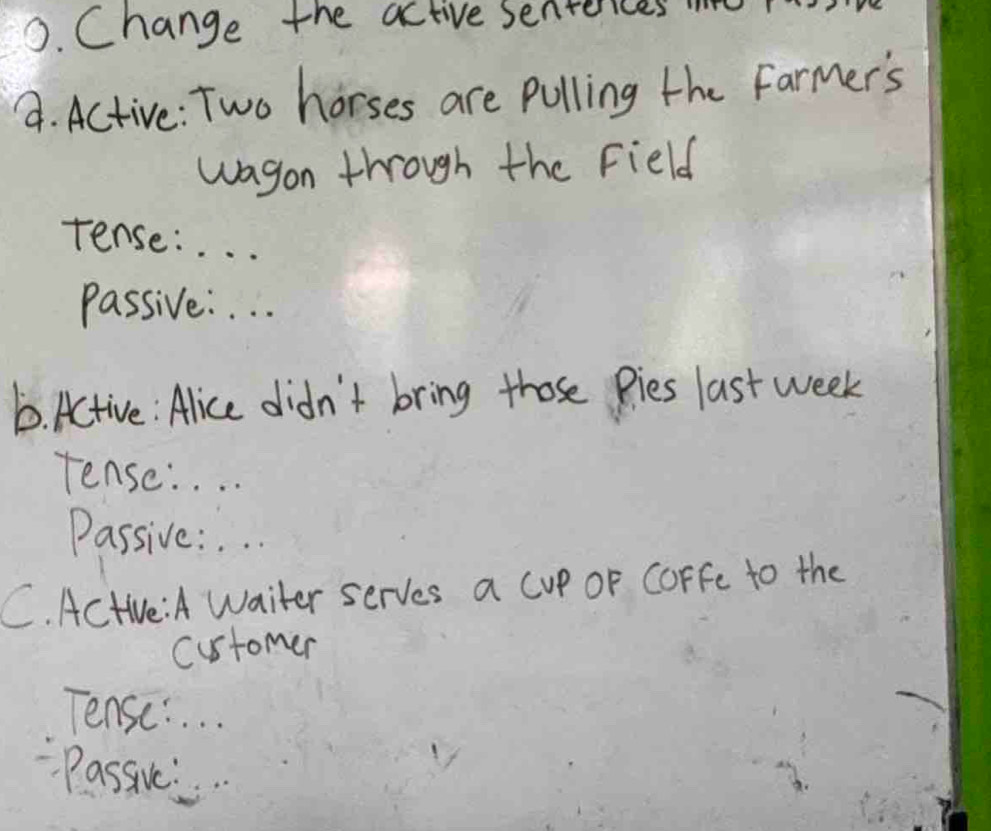 0. Change the active sentences into
a. Active: Two horses are pulling the Farmer's
wagon through the Field
Tense: ...
Passive: ...
b. Active: Alice didn't bring those Pies last week
Tense: ...
Passive: ...
C. Active: A Waiter serves a cup OF COFFe to the
customer
Tense: ...
Passive: ...